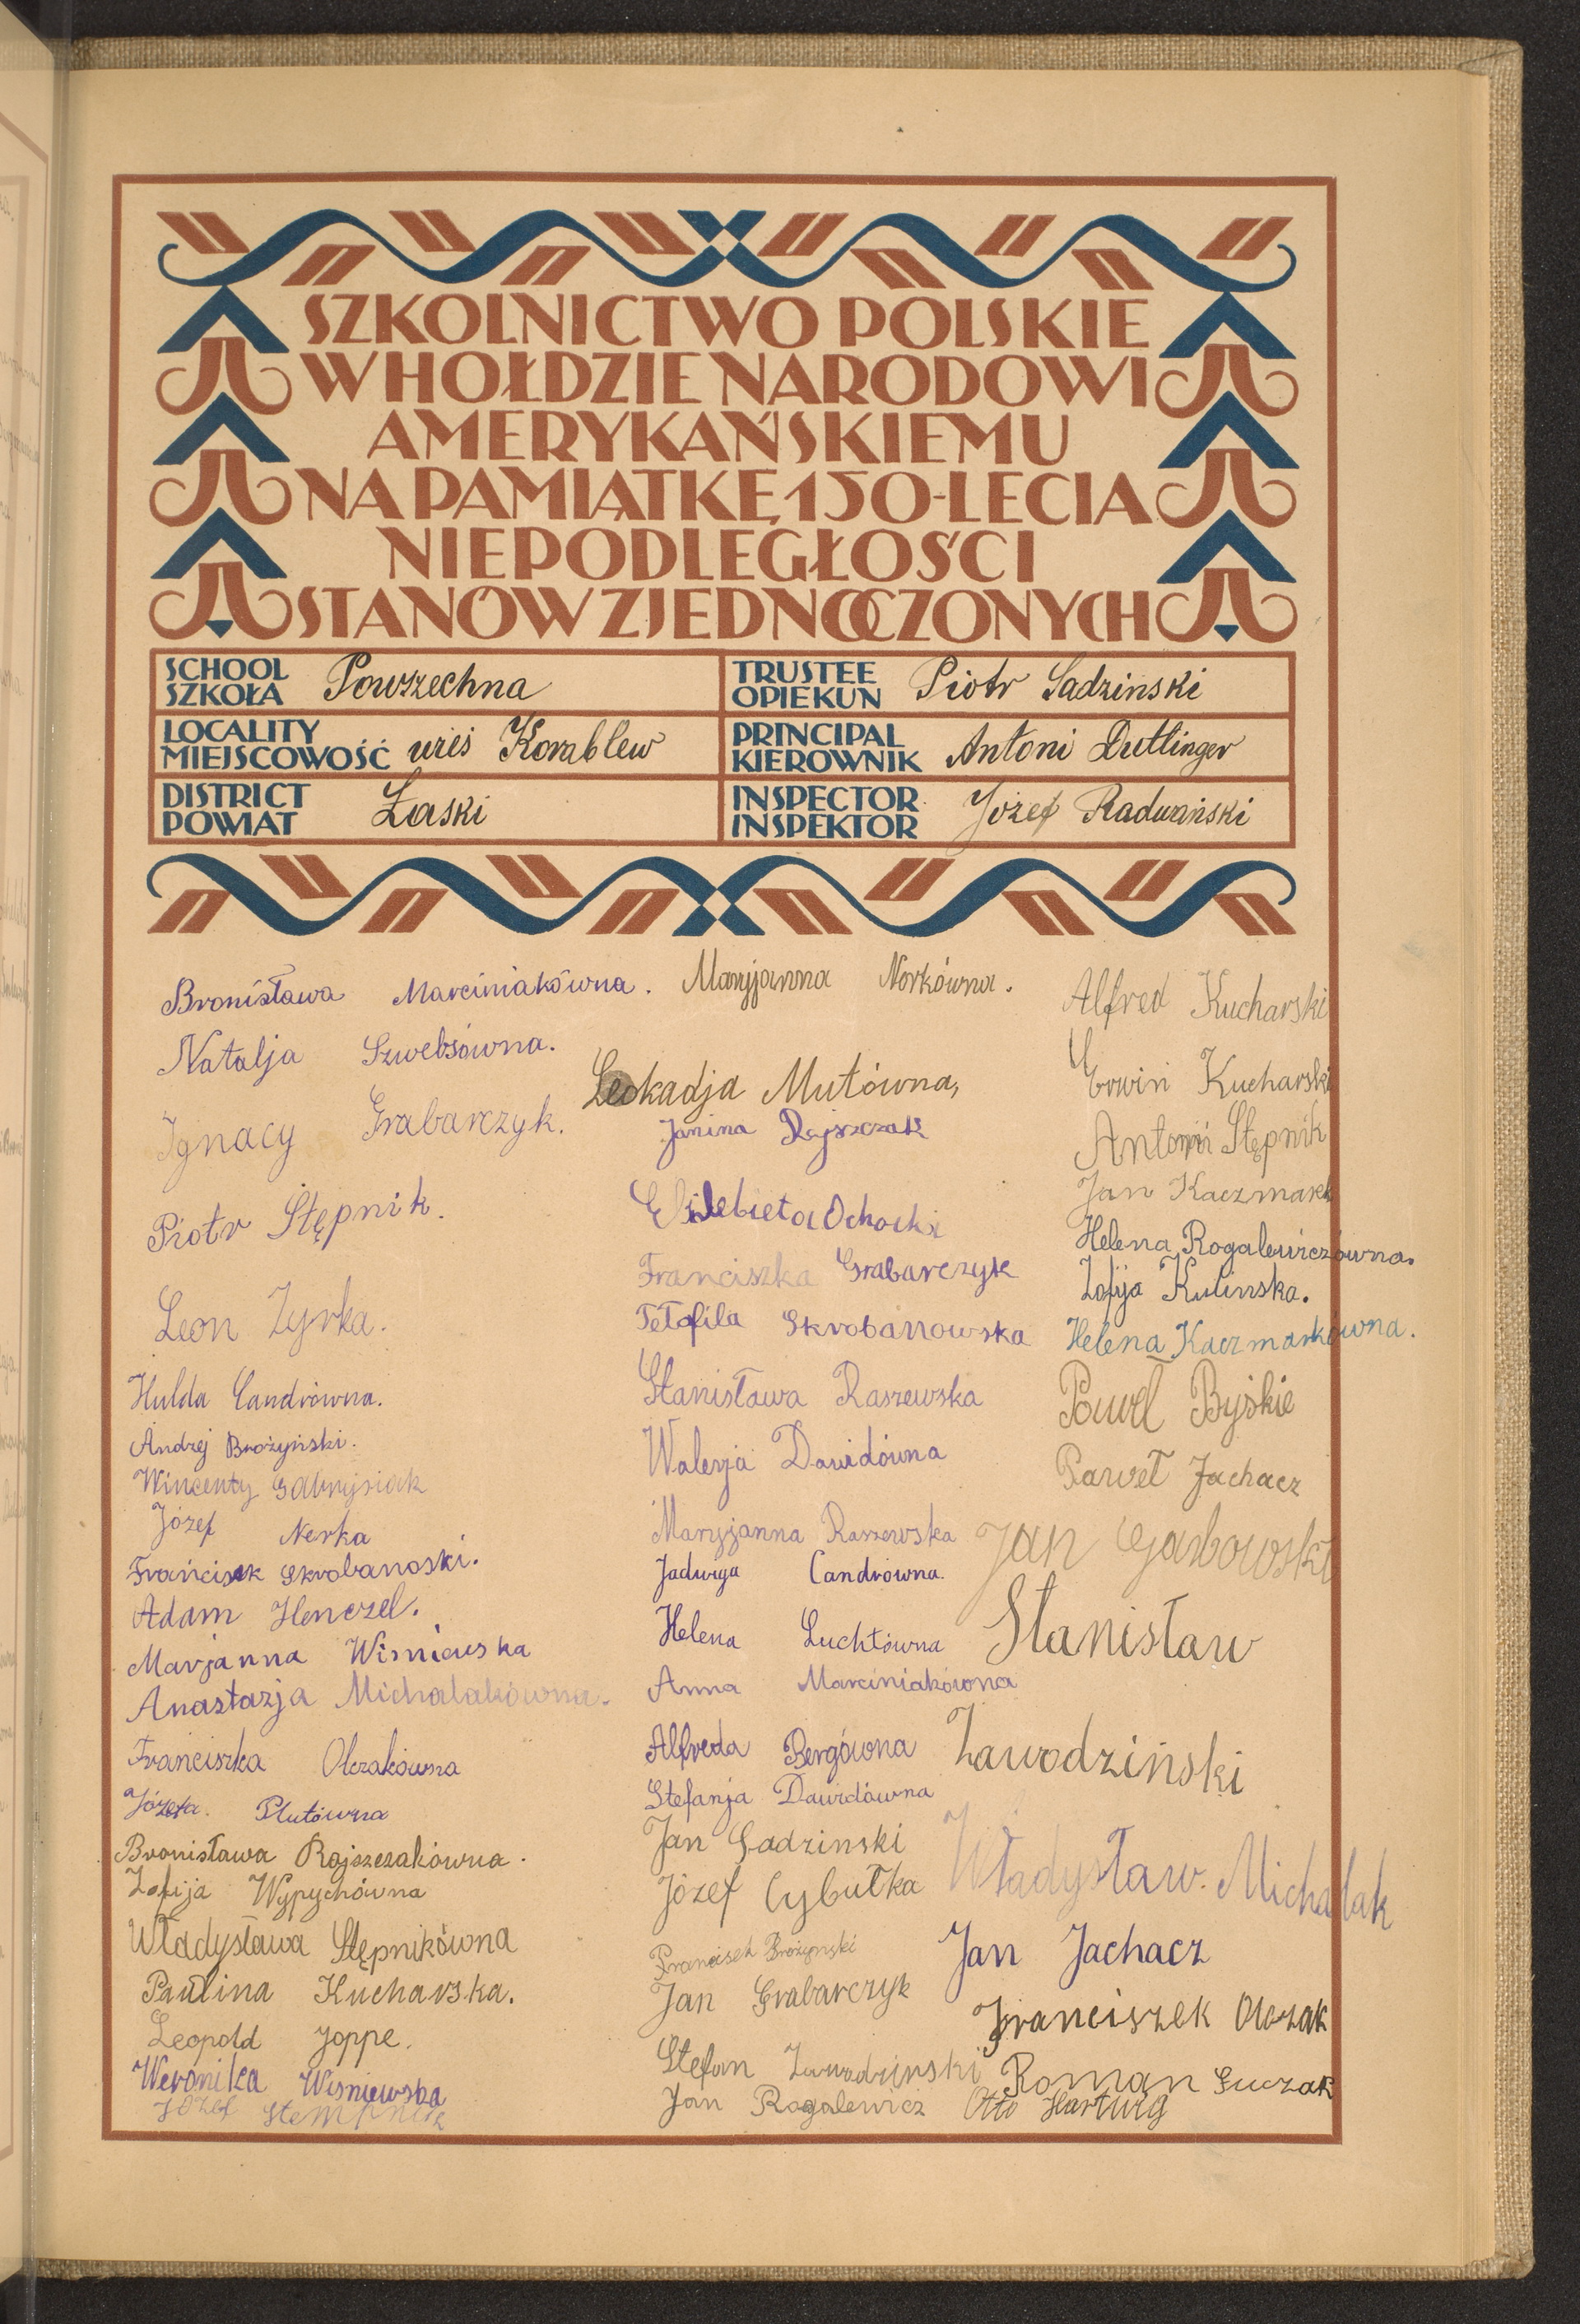 SZKOLNICTWO POLSKIE
W HOŁDZIE NARODOWI
AMERYKAŃSKIEMU
NA PAMIĄTKĘ 150-LECIA
NIEPODLEGŁOŚCI
STANÓW ZJEDNOCZONYCH
SCHOOL
SZKOŁA Powszechna
LOCALITY
MIEJSCOWOŚĆ wieś Korablew
DISTRICT
POWIAT Łaski
TRUSTEE
OPIEKUN Piotr Sadzinski
PRINCIPAL
KIEROWNIK Antoni Dutlinger
INSPECTOR
INSPEKTOR Józef Radwański
Bronisława Marciniakówna.
Natalja Szwebsówna.
Ignacy Grabarczyk.
Piotr Stępnik.
Leon Zyrka.
Hulda Candrówna.
Andrzej Brożyński.
Wincenty
Józef Nerka
Skrobanoski.
Adam Henczel.
Marjanna Wisniewska
Anastazja Michalakówna.
Franciszka Olczakówna
Józefa. Plutówna
Bronisława Rojszczakówna.
Zofija Wypychówna
Władysława Stępnikówna
Paulina Kucharska.
Leopold Joppe.
Weronika Wisniewska
Józef Stempnik
Maryjanna Norkówna.
Leokadja Mutówna,
Janina Rojszczak
Ochocki
Franciszka Grabarczyk
Tetofila Skrobanowska
Stanisława Raszewska
Walerja Dawidówna
Maryjanna Raszewska
Jadwiga Candrówna.
Helena Luchtówna
Anna Marciniakówna
Alfreda Bergówna
Stefanja Dawidówna
Jan Sadzinski
Józef Cybułka
Francisek Brożynski
Jan Grabarczyk
Stefan Zawodzinski
Jan Rogalewicz
Alfred Kucharski
Erwin Kucharski
Antoni Stępnik
Jan Kaczmarek
Helena Rogalewiczówna.
Zofija Kulinska.
Helena Kaczmarkówna.
Paweł Byśkie
Paweł Jachacz
Jan Garbowski
Stanisław
Zawodziński
Władysław. Michalak
Jan Jachacz
Franciszek Olczak
Roman Guczak
Otto Hartwig